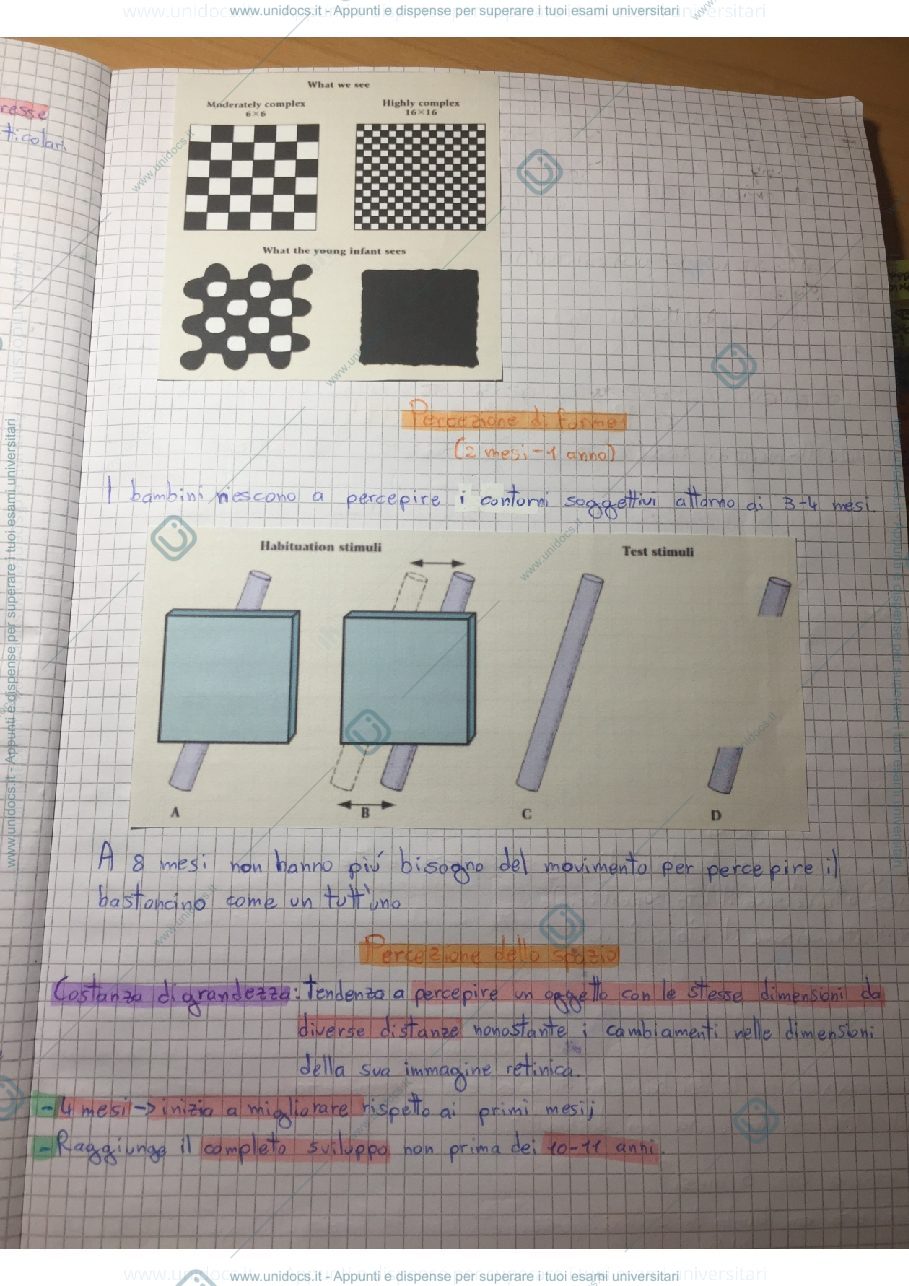 www.unidocs.it - Appunti e dispense per superare i tuoi esami universitari
resse
ticolari
What we see
Moderately complex
6×6
Highly complex
16×16
What the young infant sees
Percezione di forme
(2 mesi-1 anno)
I bambini riescono a percepire i contorni soggettivi attorno ai 3-4 mesi.
Habituation stimuli
Test stimuli
A
B
C
D
A 8 mesi non hanno più bisogno del movimento per percepire il
bastoncino come un tutt'uno
Percezione dello spazio
Costanza di grandezza: tendenza a percepire un oggetto con le stesse dimensioni da
diverse distanze nonostante i cambiamenti nelle dimensioni
della sua immagine retinica.
- 4 mesi -> inizia a migliorare rispetto ai primi mesi;
- Raggiunge il completo sviluppo non prima dei 10-11 anni.
www.unidocs.it - Appunti e dispense per superare i tuoi esami universitari